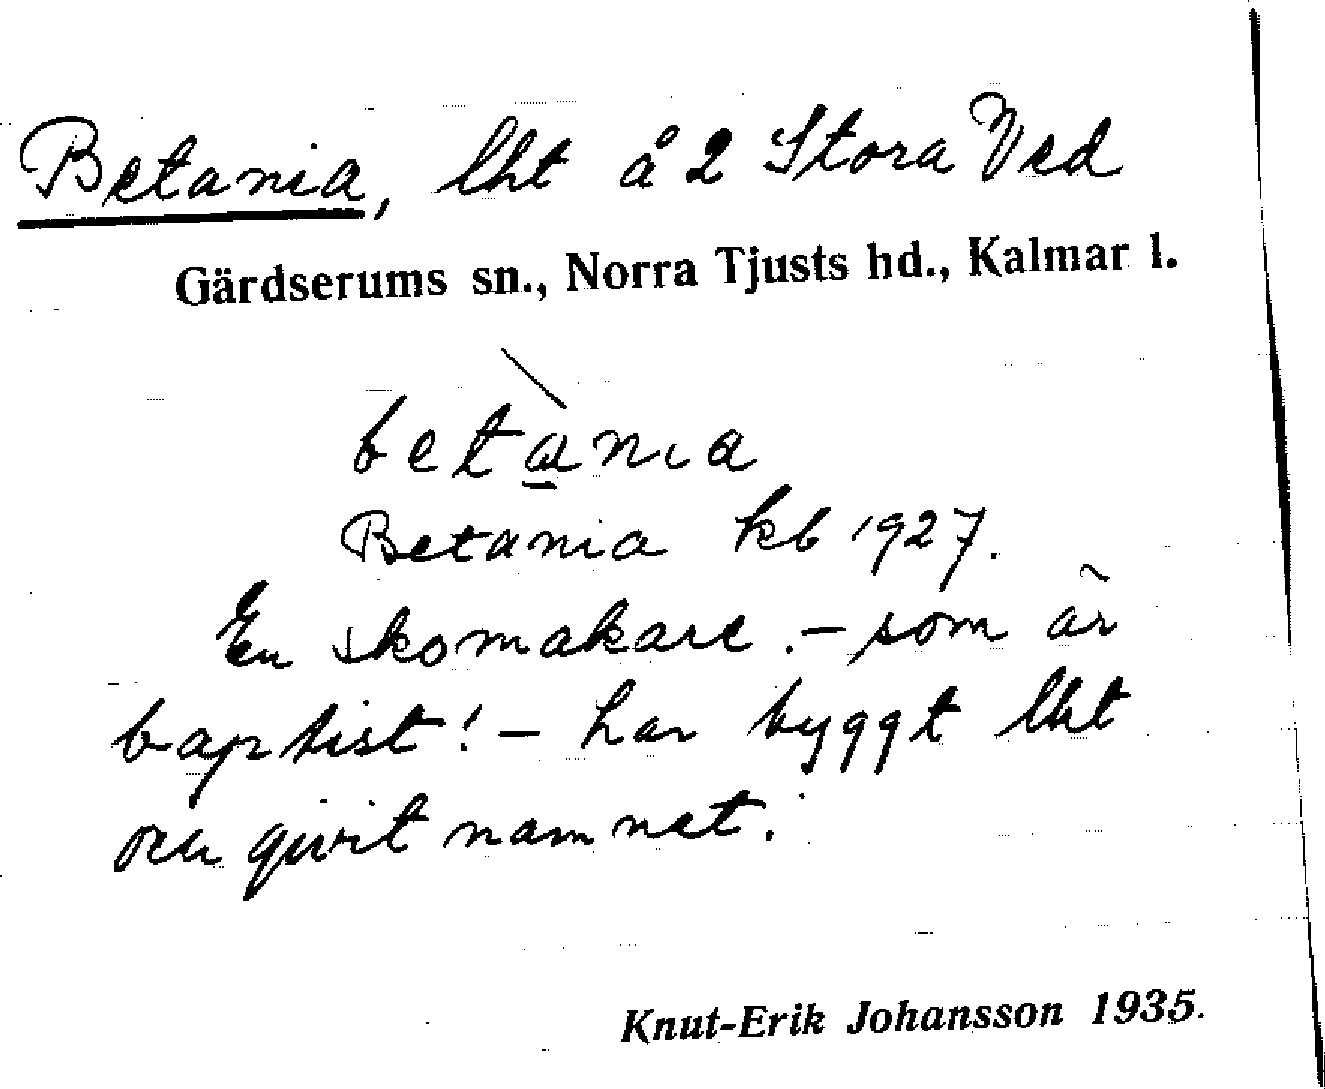 Betania, lht å 2 Stora Ved
Gärdserums sn., Norra Tjusts hd., Kalmar l.
betània
Betania kb 1927.
En skomakare. – som är
baptist! – har byggt lht
och givit namnet.
Knut-Erik Johansson 1935.